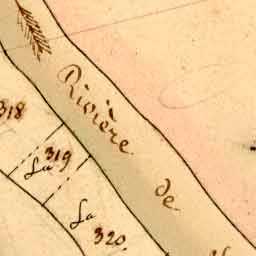 Rivière de
318
319
La
La
320